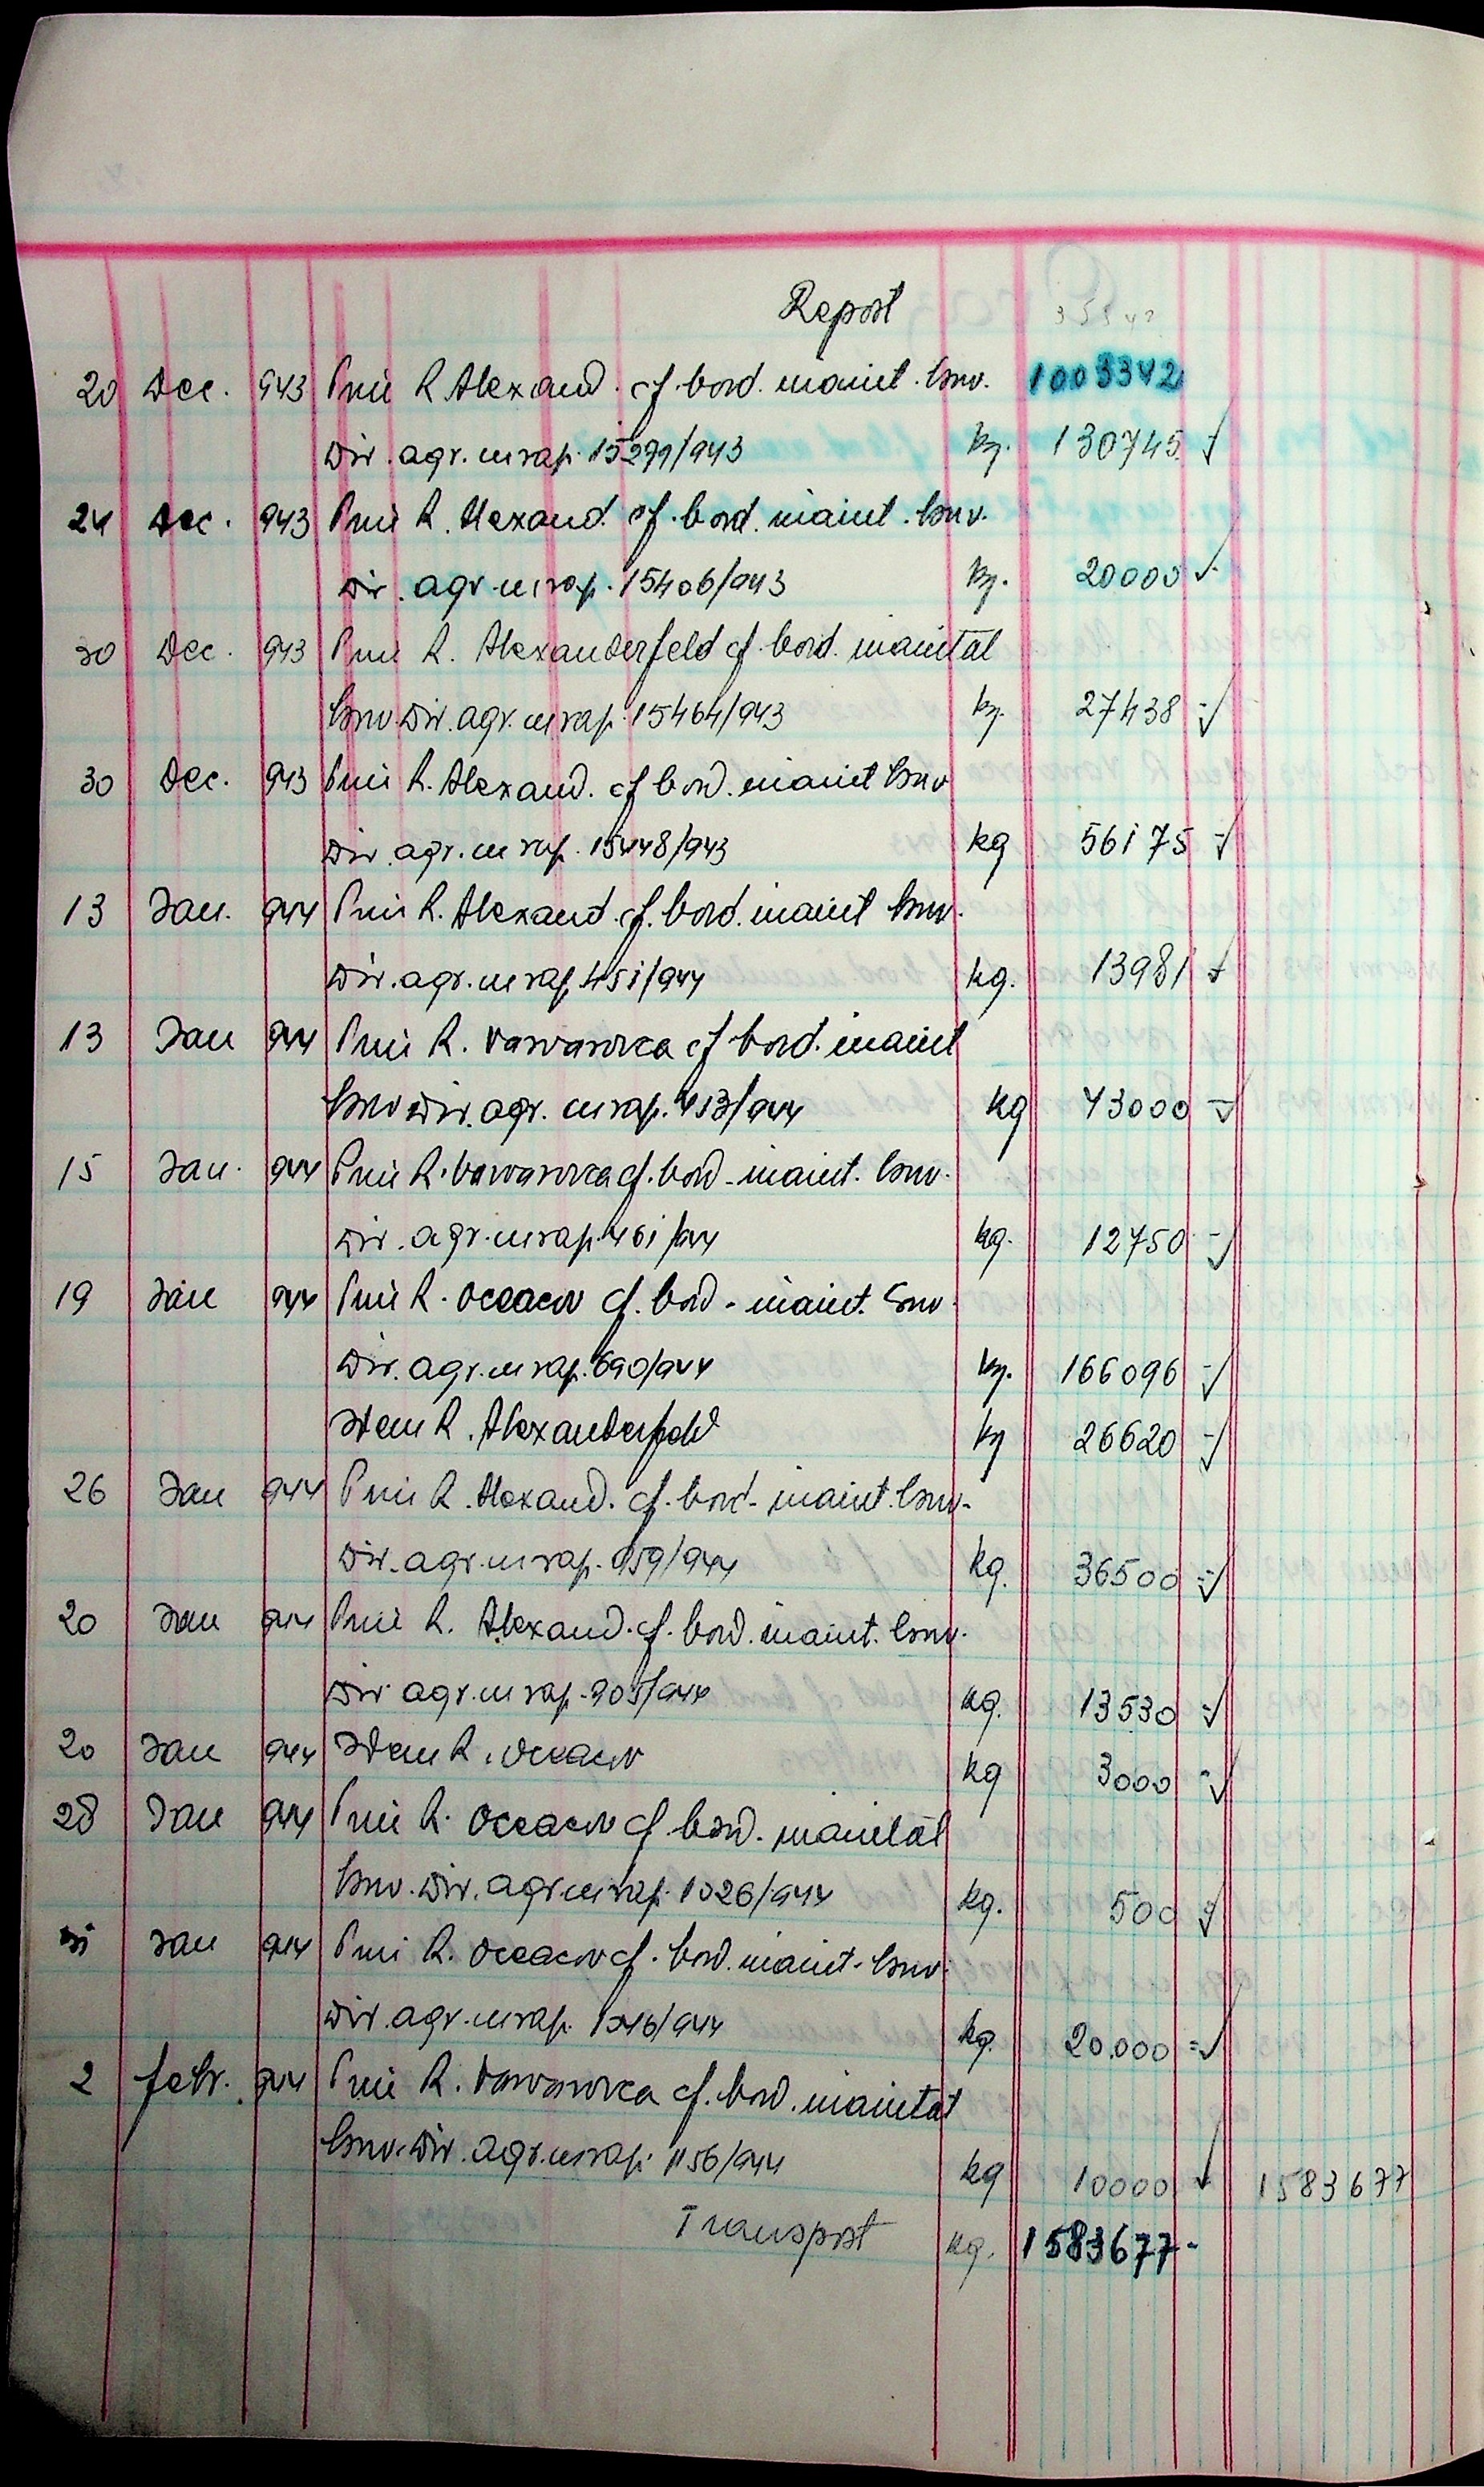 Report
35342
20 Dec. 943 Prin R Alexand. cf. bord. inaint. Guv. 1003342
Dir. agr. cu rap. 15299/943 kg. 130745
24 Dec. 943 Prin R. Alexand. cf. bord. inaint. Guv.
Dir. agr. cu rap. 15406/943 kg. 20000
30 Dec. 943 Prin R. Alexanderfeld cf. bord. inaintat
Guv. Dir. agr. cu rap. 15464/943 kg. 27438
30 Dec. 943 Prin R. Alexand. cf bord. inaint Guv
Dir. agr. cu rap. 15448/943 kg 56175
13 Ian. 944 Prin R. Alexand. cf. bord. inaint Guv.
Dir. agr. cu rap. 451/944 kg. 13981
13 Ian 944 Prin R. Varvarovca cf bord. inaint
Guv Dir. agr. cu rap. 453/944 kg 43000
15 Ian. 944 Prin R. Varvarovca cf. bord. inaint. Guv.
Dir. agr. cu rap. 461/944 kg. 12750
19 Ian 944 Prin R. Oceacov cf. bord. inaint. Guv.
Dir. agr. cu rap. 690/944 kg. 166096
Idem R. Alexanderfeld kg 26620
26 Ian 944 Prin R. Alexand. cf. bord. inaint. Guv.
Dir. agr. cu rap. 959/944 kg. 36500
20 Ian 944 Prin R. Alexand. cf. bord. inaint. Guv.
Dir. agr. cu rap. 905/944 kg. 13530
20 Ian 944 Idem R. Oceacov kg 3000
28 Ian 944 Prin R. Oceacov cf bord. inaintat
Guv. Dir. agr. cu rap. 1026/944 kg. 500
31 Ian 944 Prin R. Oceacov cf. bord. inaint. Guv.
Dir. agr. cu rap. 1246/944 kg. 20.000
2 febr. 944 Prin R. Varvarovca cf. bord. inaintat
Guv. Dir. agr. cu rap. 1156/944 kg 10000 1583677
Transport kg. 1583677-